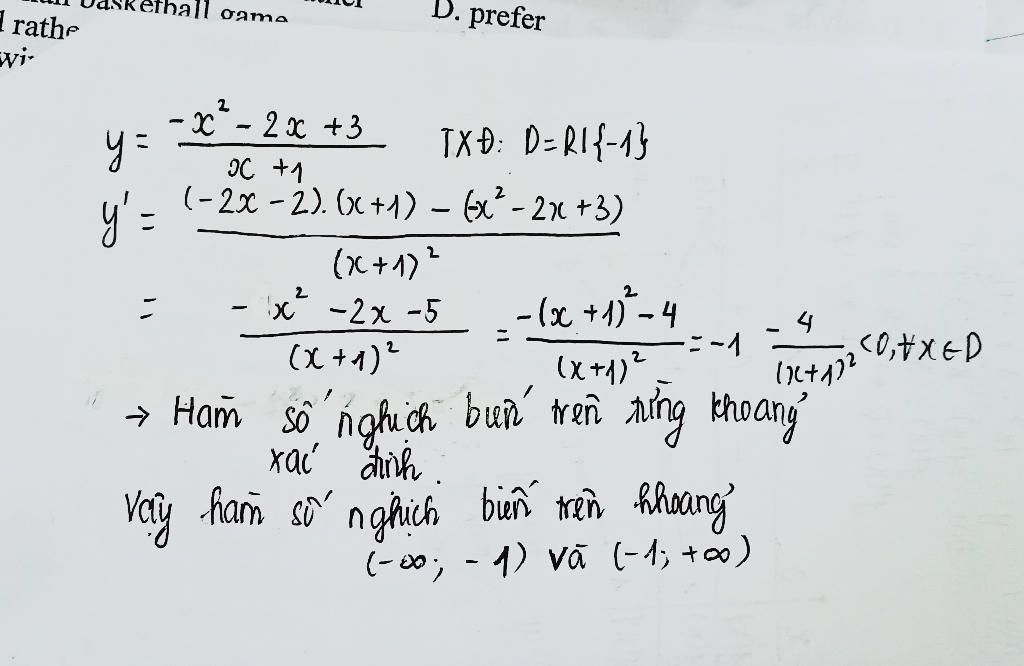 basketball game
D. prefer
rathe
y = \frac{-x^2 - 2x + 3}{x + 1} TXĐ: D = R\{-1}
y' = \frac{(-2x - 2).(x + 1) - (-x^2 - 2x + 3)}{(x + 1)^2}
= \frac{-x^2 - 2x - 5}{(x + 1)^2} = \frac{-(x + 1)^2 - 4}{(x + 1)^2} = -1 - \frac{4}{(x + 1)^2} < 0, ∀x ∈ D
→ Hàm số nghịch biến trên từng khoảng
xác định.
Vậy hàm số nghịch biến trên khoảng
(-∞; -1) và (-1; +∞)